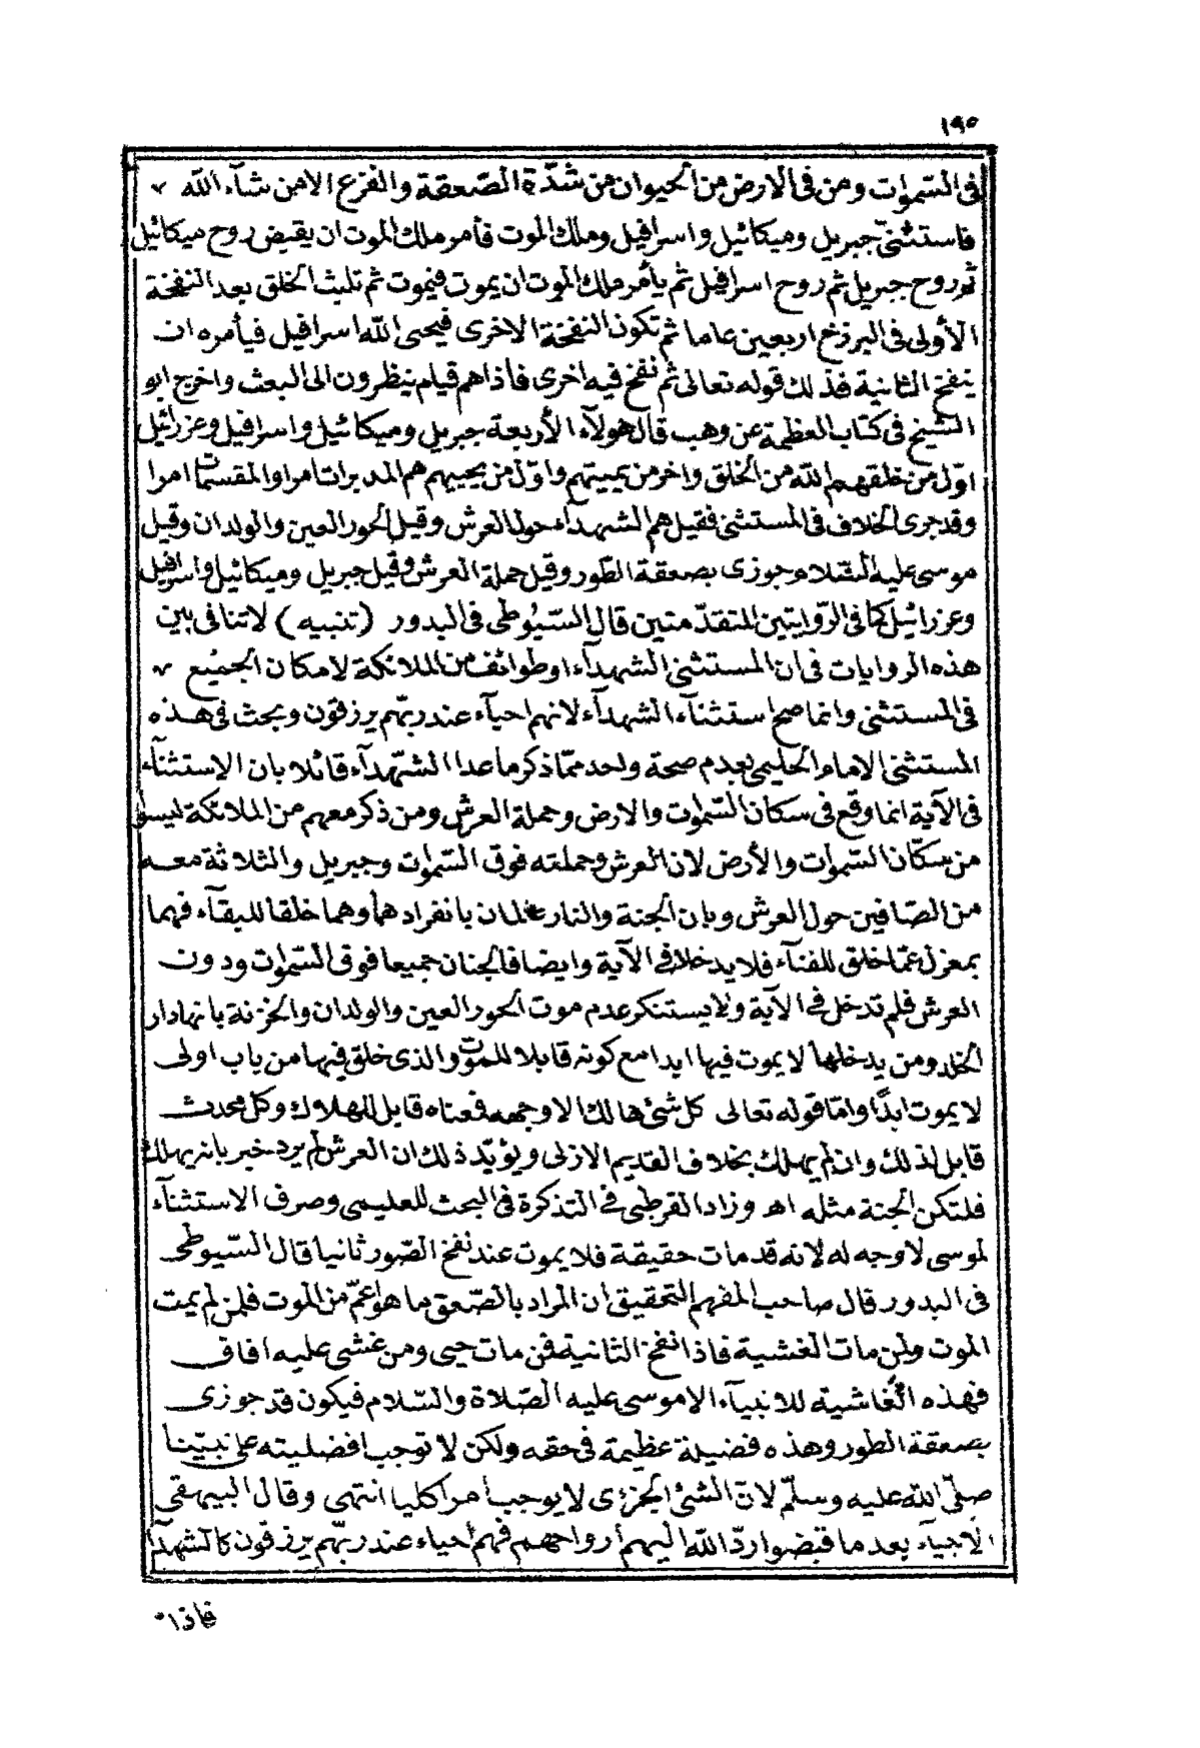 ١٩٥
فى السموات ومن فى الارض من الحيوان من شدّة الصّعقة والفزع الا من شآء الله
فاستثنىّ جبريل وميكائيل واسرافيل وملك الموت فأمر ملك الموت ان يقبض روح ميكائيل
ثم روح جبريل ثم روح اسرافيل ثم يأمر ملك الموت ان يموت فيموت ثم تلبث الخلق بعد النفخة
الأولى فى البرزخ اربعين عاما ثم تكون النفخة الاخرى فيحيى الله اسرافيل فيأمره ان
ينفخ الثانية فذلك قوله تعالى ثم نفخ فيه اخرى فاذاهم قيام ينظرون الى البعث واخرج ابو
الشيخ فى كتاب العظمة عن وهب قال هولآء الأربعة جبريل وميكائيل واسرافيل وعزرائيل
اوّل من خلقهم الله من الخلق واخر من يميتهم واوّل من يحييهم هم المدبرات امرا والمقسمات امرا
وقد جرى الخلاف فى المستثنى فقيل هم الشهدآء حول العرش وقيل الحور العين والولدان وقيل
موسى عليه السّلام وجوزى بصعقة الطّور وقيل حملة العرش وقيل جبريل وميكائيل واسرافيل
وعزرائيل كما فى الرّوايتين المتقدّمتين قال السّيُوطى فى البدور (تنبيه) لاتنافى بين
هذه الروايات فى ان المستثنى الشهدآء او طوائف من الملائكة لامكان الجميع
فى المستثنى وانما صح استثنآء الشهدآء لانهم احيآء عند ربّهم يرزقون وبحث فى هذه
المستثنى الامام الحليمى بعدم صحة واحد ممّا ذكر ما عدا الشّهدآء قائلا بان الاستثنآء
فى الآية انما وقع فى سكان السّموات والارض وحملة العرش ومن ذكر معهم من الملائكة ليسوا
من سكّان السّموات والأرض لان العرش وحملته فوق السّموات وجبريل والثلاثة معه
من الصّافين حول العرش وبان الجنة والنار عالمان بانفرادهما وهما خلقا للبقآء فهما
بمعزل عمّا خلق للفنآء فلا يدخلا فى الآية وايضا فالجنان جميعا فوق السّموات ودون
العرش فلم تدخل فى الآية ولا يستنكر عدم موت الحور العين والولدان والخزنة بانها دار
الخلد ومن يدخلها لا يموت فيها ابدا مع كونه قابلا للموت والذى خلق فيها من باب اولى
لا يموت ابدًا وامّا قوله تعالى كل شئ هالك الا وجهه فمعناه قابل للهلاك وكل محدث
قابل لذلك وان لم يهلك بخلاف القديم الازلى ويؤيّد ذلك ان العرش لم يرد خبر بانه يهلك
فلتكن الجنة مثله اهـ وزاد القرطبى فى التذكرة فى البحث للعليمى وصرف الاستثنآء
لموسى لا وجه له لانه قد مات حقيقة فلا يموت عند نفخ الصّور ثانيا قال السّيوطى
فى البدور قال صاحب المفهم التحقيق ان المراد بالصّعق ما هو اعمّ من الموت فلمن لم يمت
الموت ولمن مات الغشية فاذا نفخ الثانية فمن مات حيى ومن غشى عليه افاق
فهذه الغاشية للانبيآء الا موسى عليه الصّلاة والسّلام فيكون قد جوزى
بصعقة الطور وهذه فضيلة عظيمة فى حقه ولكن لا توجب افضليته على نبيّنا
صلّى الله عليه وسلّم لانّ الشئ الجزؤى لا يوجب أمرا كليا انتهى وقال البيهقى
الانبيآء بعد ما قبضوا ردّ الله اليهم أرواحهم فهم أحياء عند ربّهم يرزقون كالشهدآء
فاذا